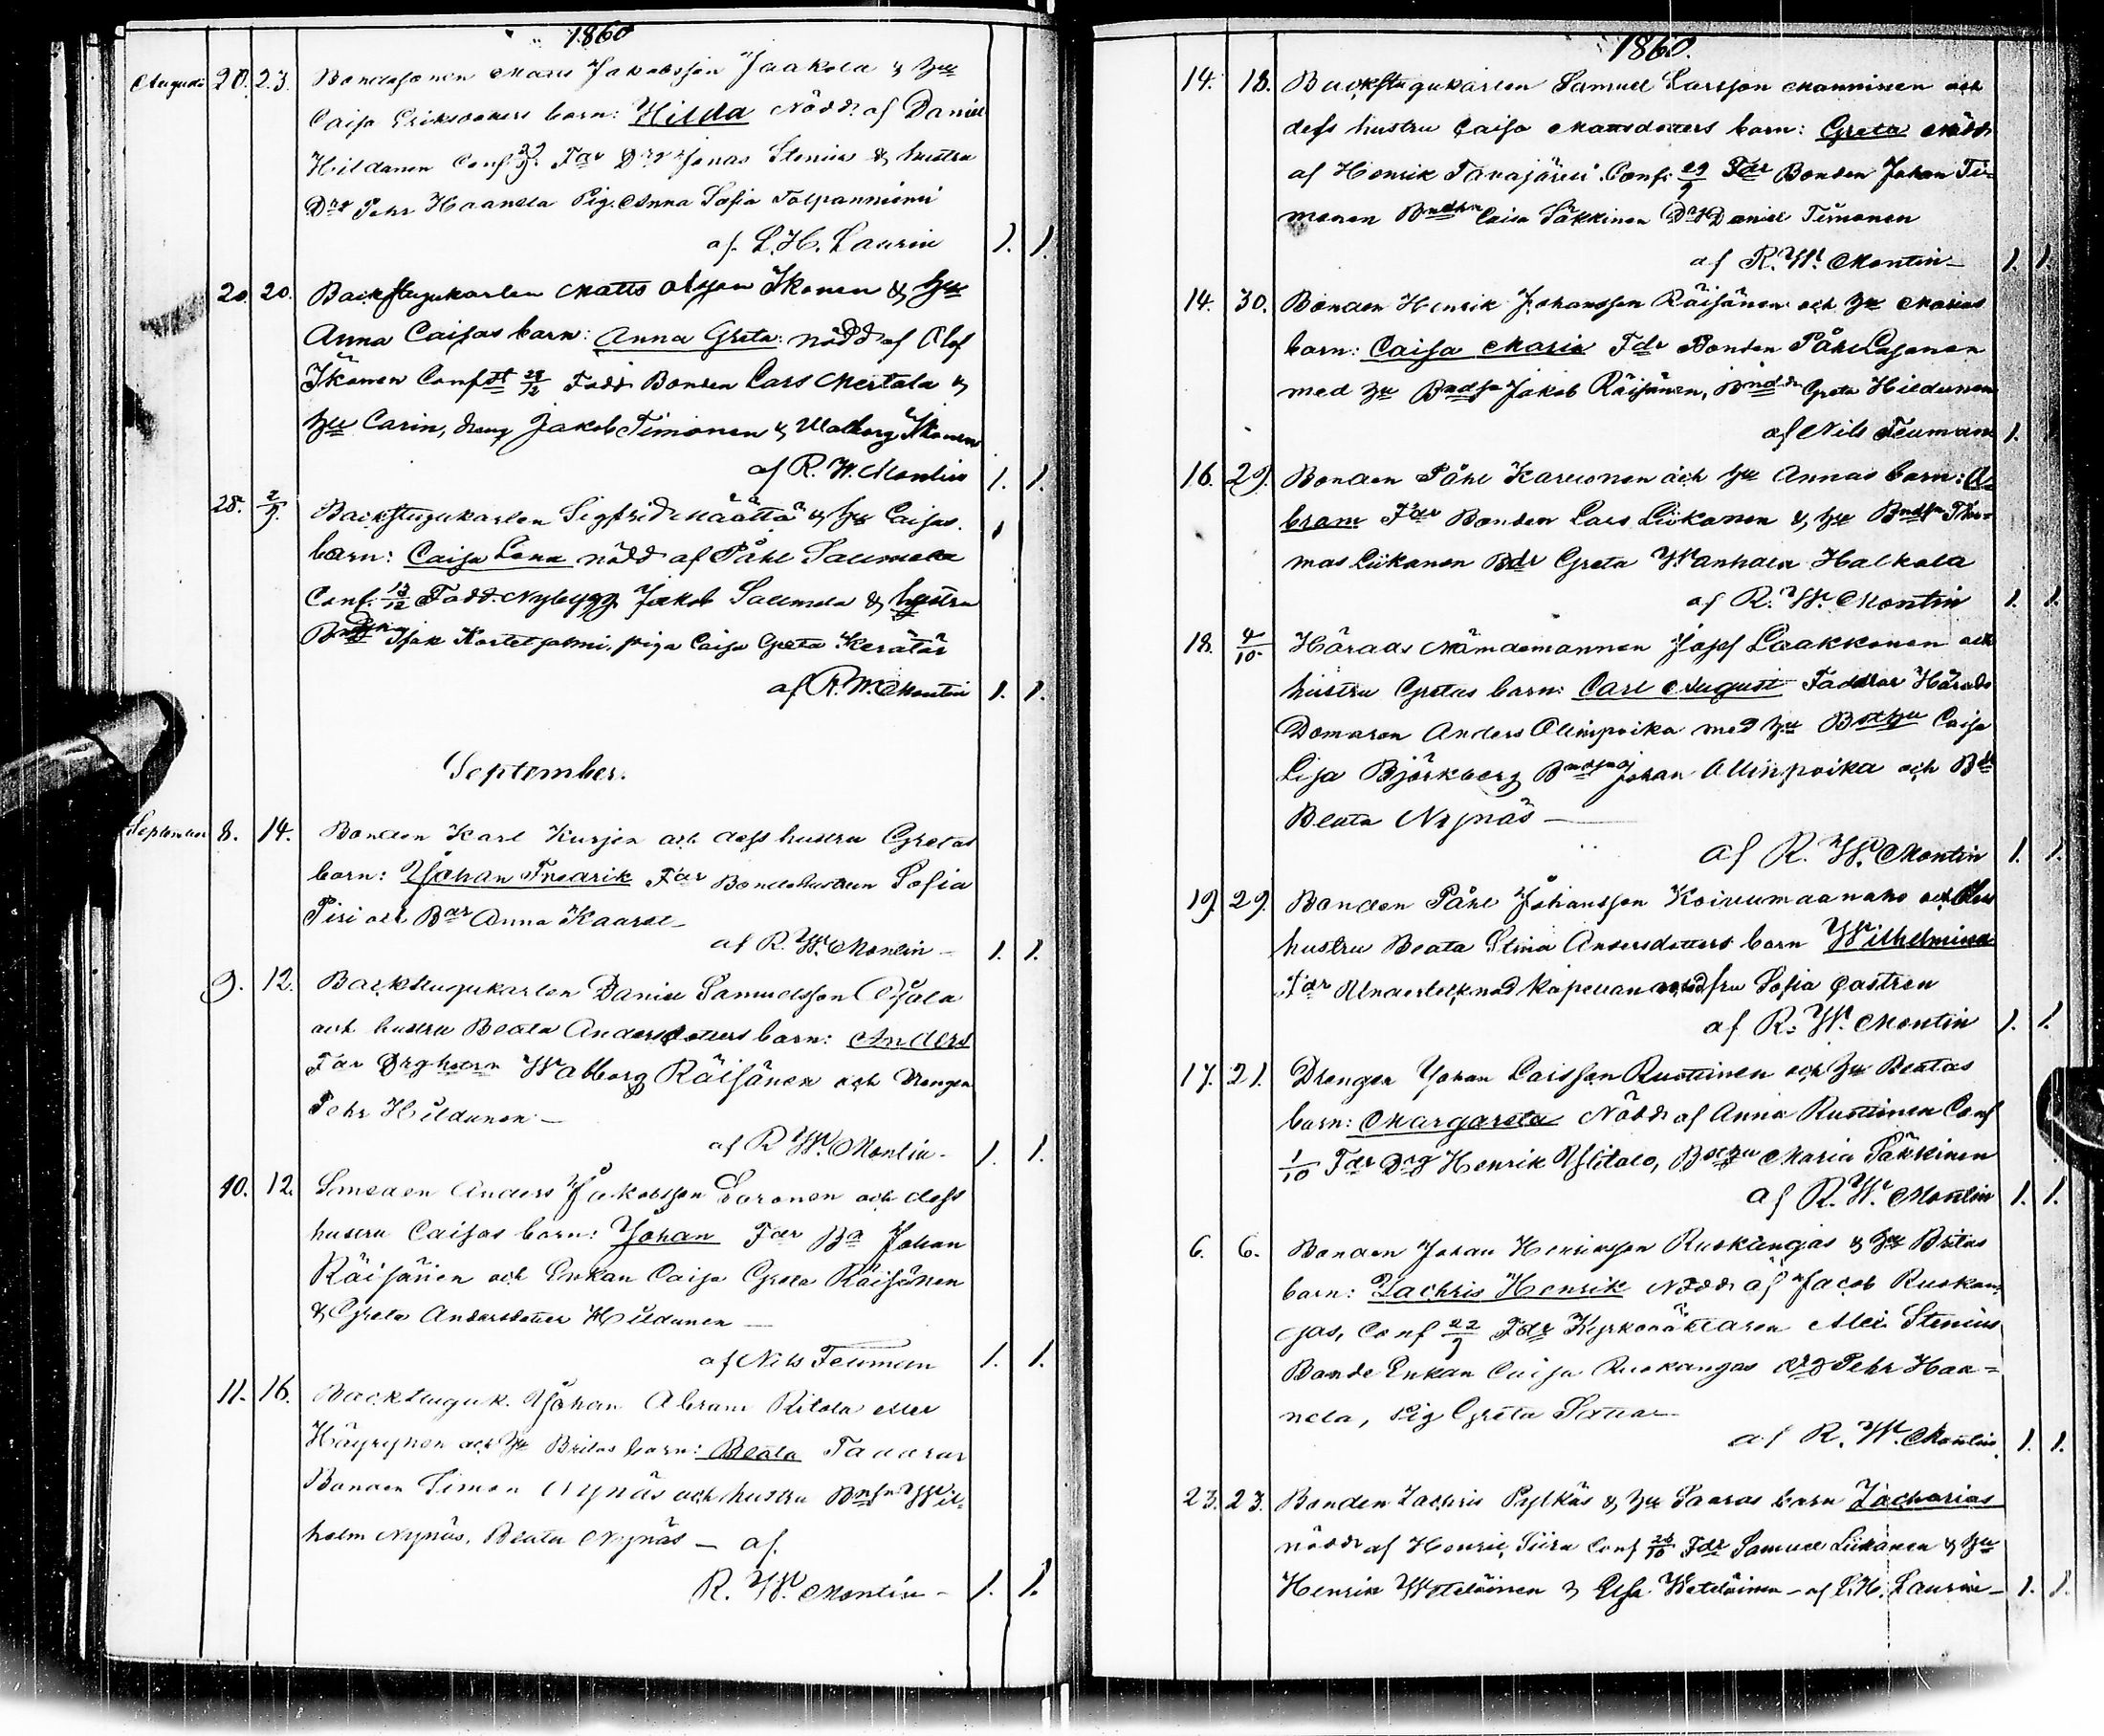 1860
Augusti 20. 23. Bondesonen Matts Jakobsson Jaakola & hu
Caisa Eriksdotters barn: Hilda Nödd. af Daniel
Hildunen Conf. Far Drg Jonas Stenius & hustru
Drg Pehr Haanela Pig. Anna Sofia Talpanniemi
af L. H. Laurin 1. 1.
20. 20. Backstugukarlen Matts Olsson Ikonen & hu
Anna Caisas barn: Anna Greta: nödd af Olof
Ikonen Conf 28/12 Fadd Bonden Lars Mertala &
hu Carin, dreng Jakob Timonen & Walborg Ikonen
af R. W. Montin 1. 1.
28. 2/9. Backstugukarlen Sigfrid Määttä & hu Caisas
barn: Caisa Lena nödd af Påhl Saumela
Conf. 13/12 Fadd. Nybygg. Jakob Saumela & hustru
Isak Kortetjalmi, piga Caisa Greta Kerätär
af R. W. Montin 1. 1.
September.
September 8. 14. Bonden Karl Kurjen och dess hustru Gretas
barn: Johan Fredrik Far Bondehustrun Sofia
Piri och Bdr Anna Kaarel
af R. W. Montin 1. 1.
9. 12. Backstugukarlen Daniel Samuelsson Ojala
och hustru Beata Andersdotters barn: Anders
Far Drghustrn Walborg Räisänen och Drengen
Pehr Hildunen
af R. W. Montin. 1. 1.
10. 12. Smeden Anders Jakobsson Soronen och dess
hustru Caisas barn: Johan Far Bd Johan
Räisänen och Enkan Caisa Greta Räisänen
& Greta Andersdotter Hildunen
af Nils Teuman 1. 1.
11. 16. Backstuguk. Johan Abram Ritola eller
Häyrynen och hu Britas barn: Beata Faddrar
Bonden Simon Nynäs och hustru Bnsn Wil-
helm Nynäs, Beata Nynäs — af
R. W. Montin - 1. 1.
1860.
14. 18. Backstugukarlen Samuel Larsson Manninen och
dess hustru Caisa Mattsdotters barn: Greta Nödd
af Henrik Tavajärvi Conf: 29/9 Fdr Bonden Johan Ti-
monen Caisa Säkkinen Drg Daniel Timonen
af R. W. Montin 1. 1.
14. 30. Bonden Henrik Johansson Räisänen och hu Marias
barn: Caisa Maria Fdr Bonden Påhl Lasonen
med hu Bndsn Jakob Räisänen, Bnd.dr Greta Hildunen
af Nils Teuman 1.
16. 29. Bonden Påhl Karvonen och hu Annas barn: A-
bram Fdr Bonden Lars Liikanen & hu Bndsn Tho-
mas Liikanen Bdr Greta Wanhala Halkola
af R. W. Montin 1. 1.
18. 4/10 Härads Nämdemannen Josef Laakkonen och
hustru Gretas barn: Carl August Faddrar Härads
Domaren Anders Olimpoika med hu Caisa
Lisa Björkberg Johan Ollinpoika och Bdr
Beata Nynäs
af R. W. Montin 1. 1.
19. 29. Bonden Påhl Johansson Koivumaanaho och dess
hustru Beata Stina Andersdotters barn Wilhelmina
Fdr Undertecknad Kapellan med fru Sofia Castren
af R. W. Montin 1. 1.
17. 21. Drengen Johan Larsson Ruottinen och hu Beatas
barn: Margareta Nödd af Anna Ruottinen Conf
1/10 Fdr Drg Henrik Ylitalo, Maria Säkkinen
af R. W. Montin 1. 1.
6. 6. Bonden Johan Henriksson Ruokangas & hu Britas
barn: Zachris Henrik Nödd af Jacob Ruokan-
gas, Conf 22/9 Fdr Kyrkoväktaren Alex Stenius
Bonde Enkan Caisa Ruokangas Drg Pehr Haa=
nela, Pig Greta
af R. W. Montin 1. 1.
23. 23. Bonden Zachris Pylkäs & hu Saaras barn Zacharias
nödd af Henric Siira Conf 28/10 Fdr Samuel Liikanen & hu
Henrik Weteläinen & Elsa Weteläinen - af L. H. Laurin - 1. 1.